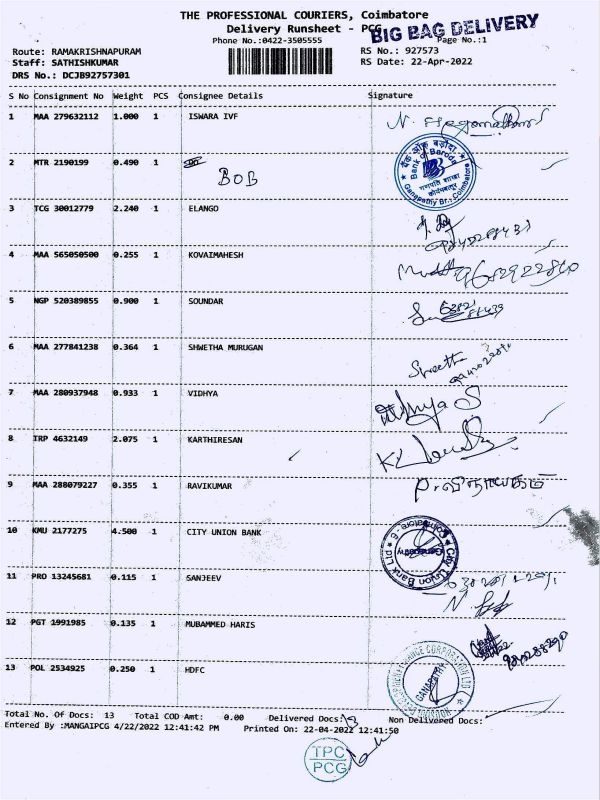 THE PROFESSIONAL COURIERS, Coimbatore
Delivery Runsheet - PCG
BIG BAG DELIVERY
Phone No.:0422-3505555
Page No.:1
Route: RAMAKRISHNAPURAM
RS No.: 927573
Staff: SATHISHKUMAR
RS Date: 22-Apr-2022
DRS No.: DCJB92757301
S No Consignment No Weight PCS Consignee Details Signature
1 MAA 279632112 1.000 1 ISWARA IVF
2 MTR 2190199 0.490 1 BOB
बैंक ऑफ़ बड़ौदा
Bank of Baroda
गणपति शाखा
कोयंबतूर
Ganapathy Br., Coimbatore
3 TCG 30012779 2.240 1 ELANGO
4 MAA 565050500 0.255 1 KOVAIMAHESH
9682922860
5 NGP 520389855 0.900 1 SOUNDAR
6 MAA 277841238 0.364 1 SHWETHA MURUGAN
7 MAA 280937948 0.933 1 VIDHYA
Vidhya S
8 IRP 4632149 2.075 1 KARTHIRESAN
9 MAA 288079227 0.355 1 RAVIKUMAR
P. விநாயகம்
10 KMU 2177275 4.500 1 CITY UNION BANK
City Union Bank Ltd
Ganapathy
Coimbatore - 6
11 PRO 13245681 0.115 1 SANJEEV
12 PGT 1991985 0.135 1 MUBAMMED HARIS
13 POL 2534925 0.250 1 HDFC
GANAPATHY
Total No. Of Docs: 13 Total COD Amt: 0.00 Delivered Docs: 13 Non Delivered Docs:
Entered By :MANGAIPCG 4/22/2022 12:41:42 PM Printed On: 22-04-2022 12:41:50
TPC
PCG